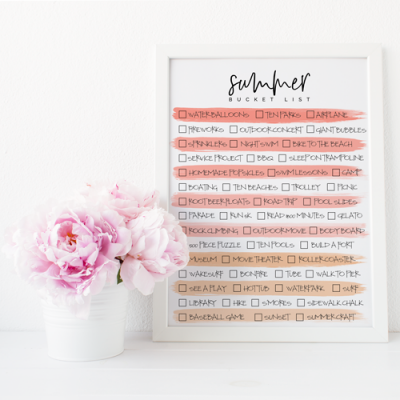 summer
BUCKET LIST
WATER BALLOONS TEN PARKS AIRPLANE
FIREWORKS OUTDOOR CONCERT GIANT BUBBLES
SPRINKLERS NIGHT SWIM BIKE TO THE BEACH
SERVICE PROJECT BBQ SLEEP ON TRAMPOLINE
HOMEMADE POPSICLES SWIM LESSONS CAMP
BOATING TEN BEACHES TROLLEY PICNIC
ROOT BEER FLOATS ROAD TRIP POOL SLIDES
PARADE RUN 5K READ MINUTES GELATO
ROCK CLIMBING OUTDOOR MOVIE BODY BOARD
PIECE PUZZLE TEN POOLS BUILD A FORT
MUSEUM MOVIE THEATER ROLLER COASTER
WAKESURF BONFIRE TUBE WALK TO PIER
SEE A PLAY HOT TUB WATERPARK SURF
LIBRARY HIKE S'MORES SIDEWALK CHALK
BASEBALL GAME SUNSET SUMMER CRAFT